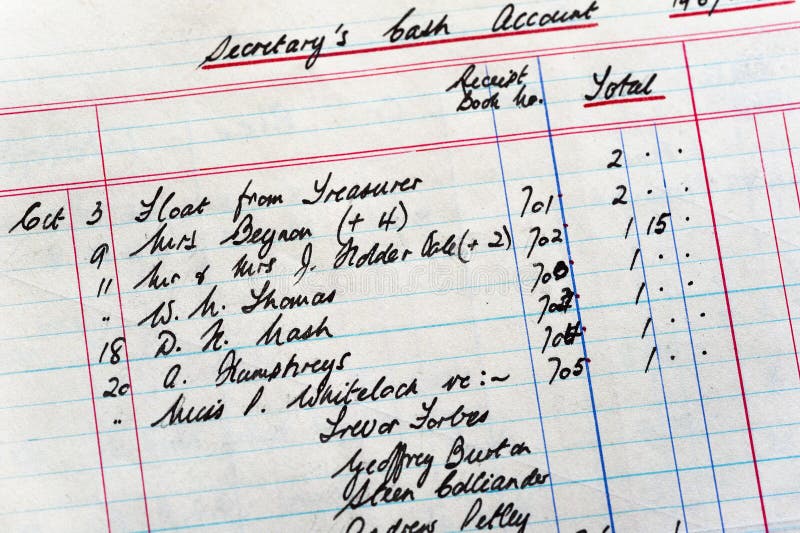 Secretary's Cash Account 196
Receipt Book No. Total
Oct 3 Float from Treasurer 2 . .
9 Mrs Beynon (+ 4) 701 2 . .
11 Mr & Mrs J. Holder Dale (+ 2) 702 1 15 .
" W. H. Thomas 703 1 . .
18 D. H. Nash 1 . .
20 A. Humphreys 704 1 . .
" Miss P. Whitelock re:- 705 1 . .
Trevor Forbes
Geoffrey Burton
Steen Colliander
Andrew Petley
dreamstime.com